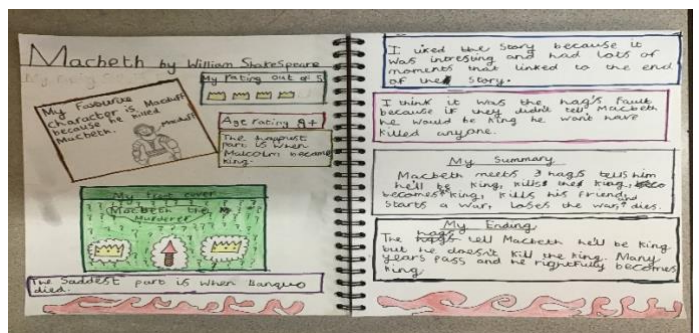 Macbeth by William Shakespeare
My rating out of 5
My Favourite
character is Macduff
because he killed
Macbeth.
Macduff
Age rating 9+
The happiest
part is when
Malcolm became
king.
My front cover
Macbeth the
Murderer
The Saddest part is when Banquo
died.
I liked the story because it
was intresting and had lots of
moments that linked to the end
of the story.
I think it was the hag's fault
because if they didn't tell Macbeth
he would be king he won't have
killed anyone.
My Summary
Macbeth meets 3 hags tells him
he'll be king, kills the king,
becomes king, kills his friend,
starts a war, loses the war, and dies.
My Ending
The hags tell Macbeth he'd be king
but he doesn't kill the king. Many
years pass and he rightfully becomes
king